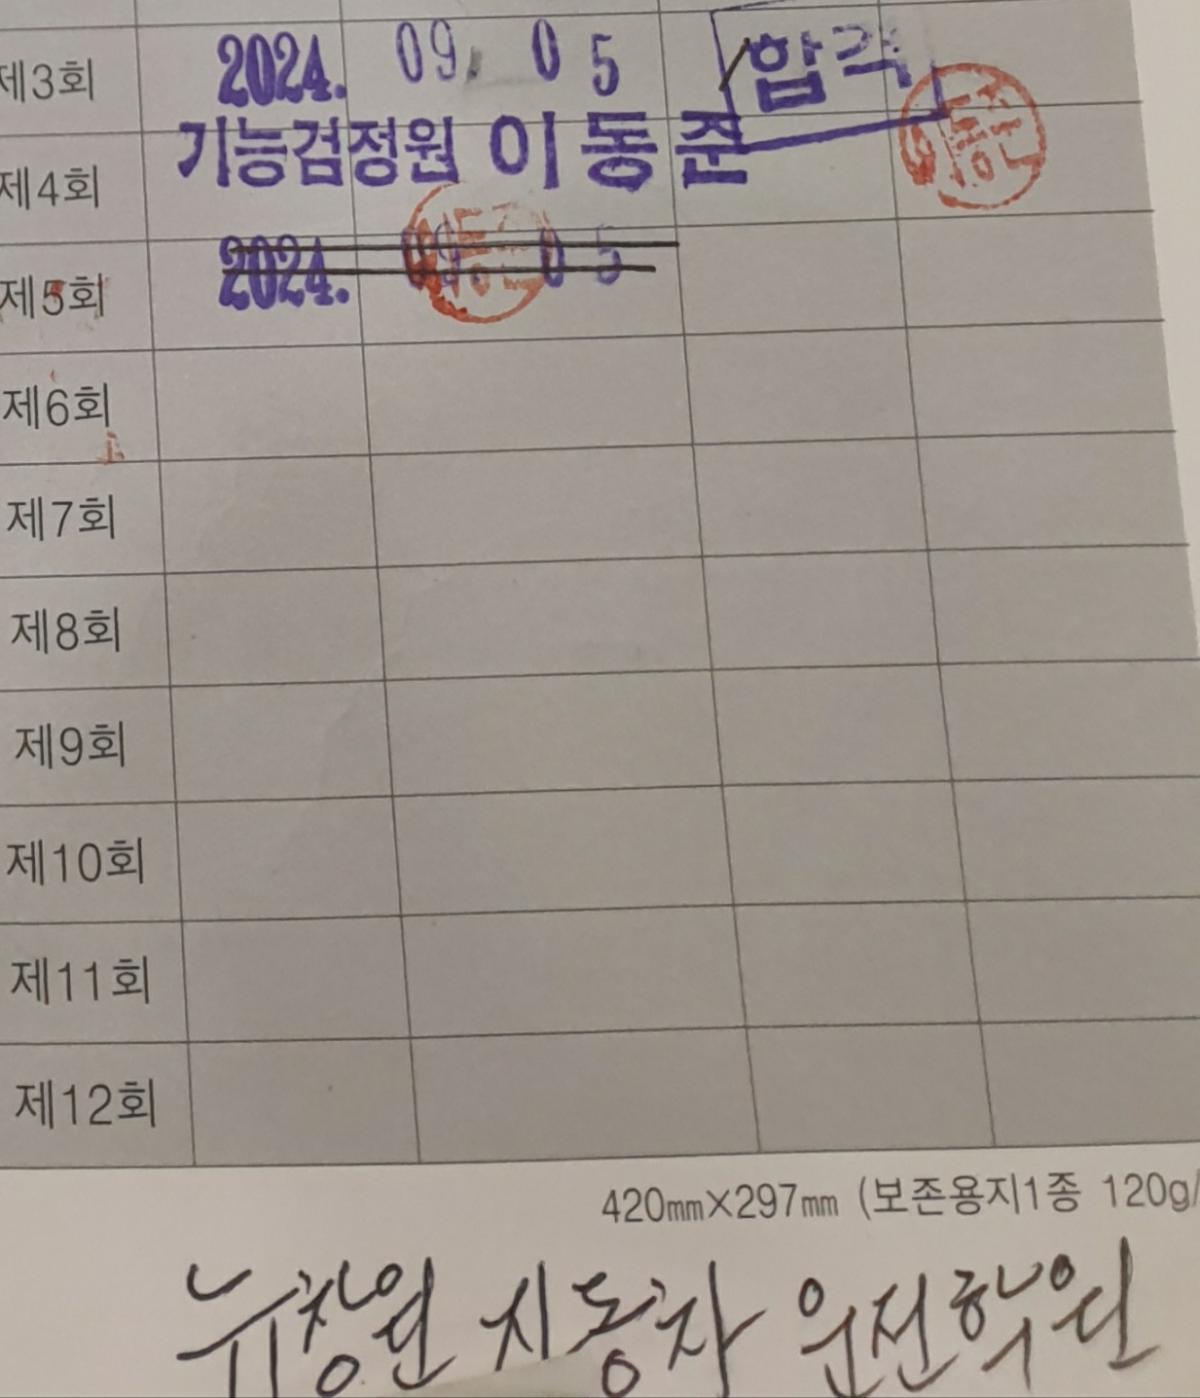 제3회 2024. 09. 05 합격
제4회 기능검정원 이동준
제5회 2024. 09. 05
제6회
제7회
제8회
제9회
제10회
제11회
제12회
420mm×297mm (보존용지1종 120g/
뉴창원 자동차 운전학원